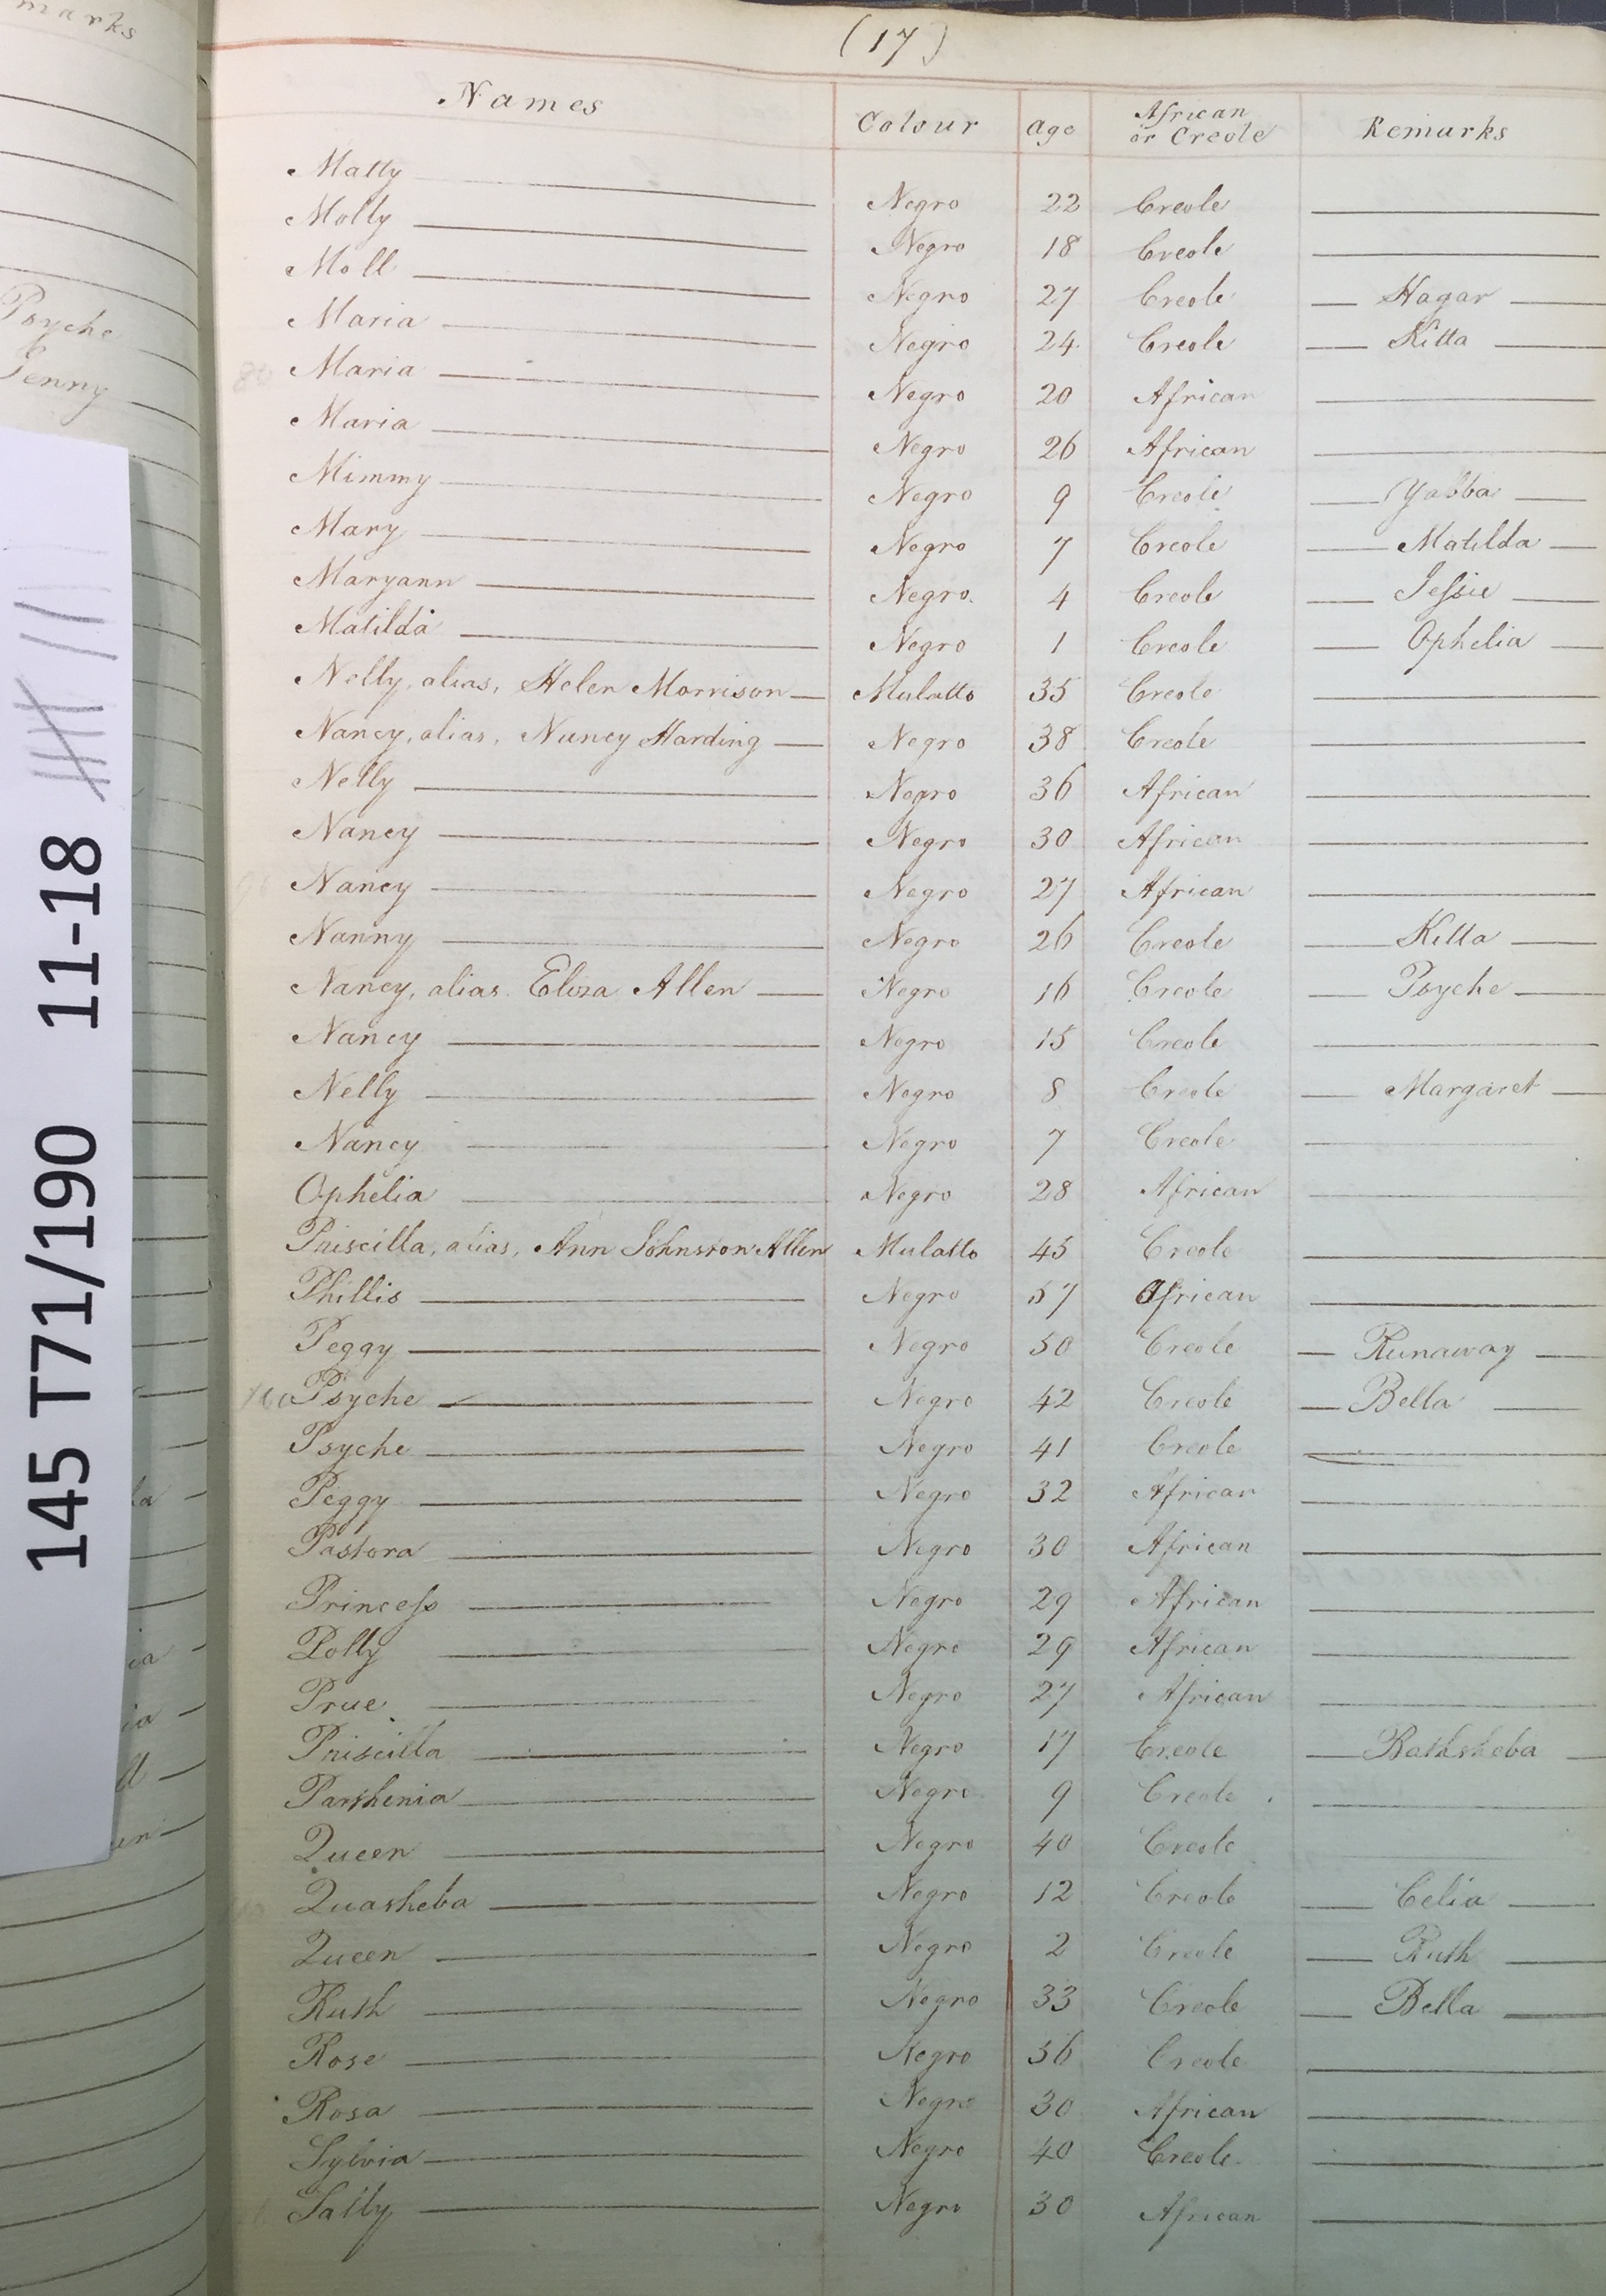 marks
Psyche
Jenny
145 T71/190 11-18
(17)
Names Colour Age African or Creole Remarks
Matty Negro 22 Creole
Molly Negro 18 Creole
Moll Negro 27 Creole Hagar
Maria Negro 24 Creole Kitta
80 Maria Negro 20 African
Maria Negro 26 African
Mimmy Negro 9 Creole Yabba
Mary Negro 7 Creole Matilda
Maryann Negro 4 Creole Jessie
Matilda Negro 1 Creole Ophelia
Nelly, alias, Helen Morrison Mulatto 35 Creole
Nancy, alias, Nancy Harding Negro 38 Creole
Nelly Negro 36 African
Nancy Negro 30 African
90 Nancy Negro 27 African
Nanny Negro 26 Creole Kitta
Nancy, alias. Eliza Allen Negro 16 Creole Psyche
Nancy Negro 15 Creole
Nelly Negro 8 Creole Margaret
Nancy Negro 7 Creole
Ophelia Negro 28 African
Priscilla, alias, Ann Johnston Allen Mulatto 45 Creole
Phillis Negro 57 African
Peggy Negro 50 Creole Runaway
100 Psyche Negro 42 Creole Bella
Psyche Negro 41 Creole
Peggy Negro 32 African
Pastora Negro 30 African
Princess Negro 29 African
Polly Negro 29 African
Prue Negro 27 African
Priscilla Negro 17 Creole Bathsheba
Parthenia Negro 9 Creole
Queen Negro 40 Creole
Quasheba Negro 12 Creole Celia
Queen Negro 2 Creole Ruth
Ruth Negro 33 Creole Bella
Rose Negro 36 Creole
Rosa Negro 30 African
Sylvia Negro 40 Creole
Sally Negro 30 African